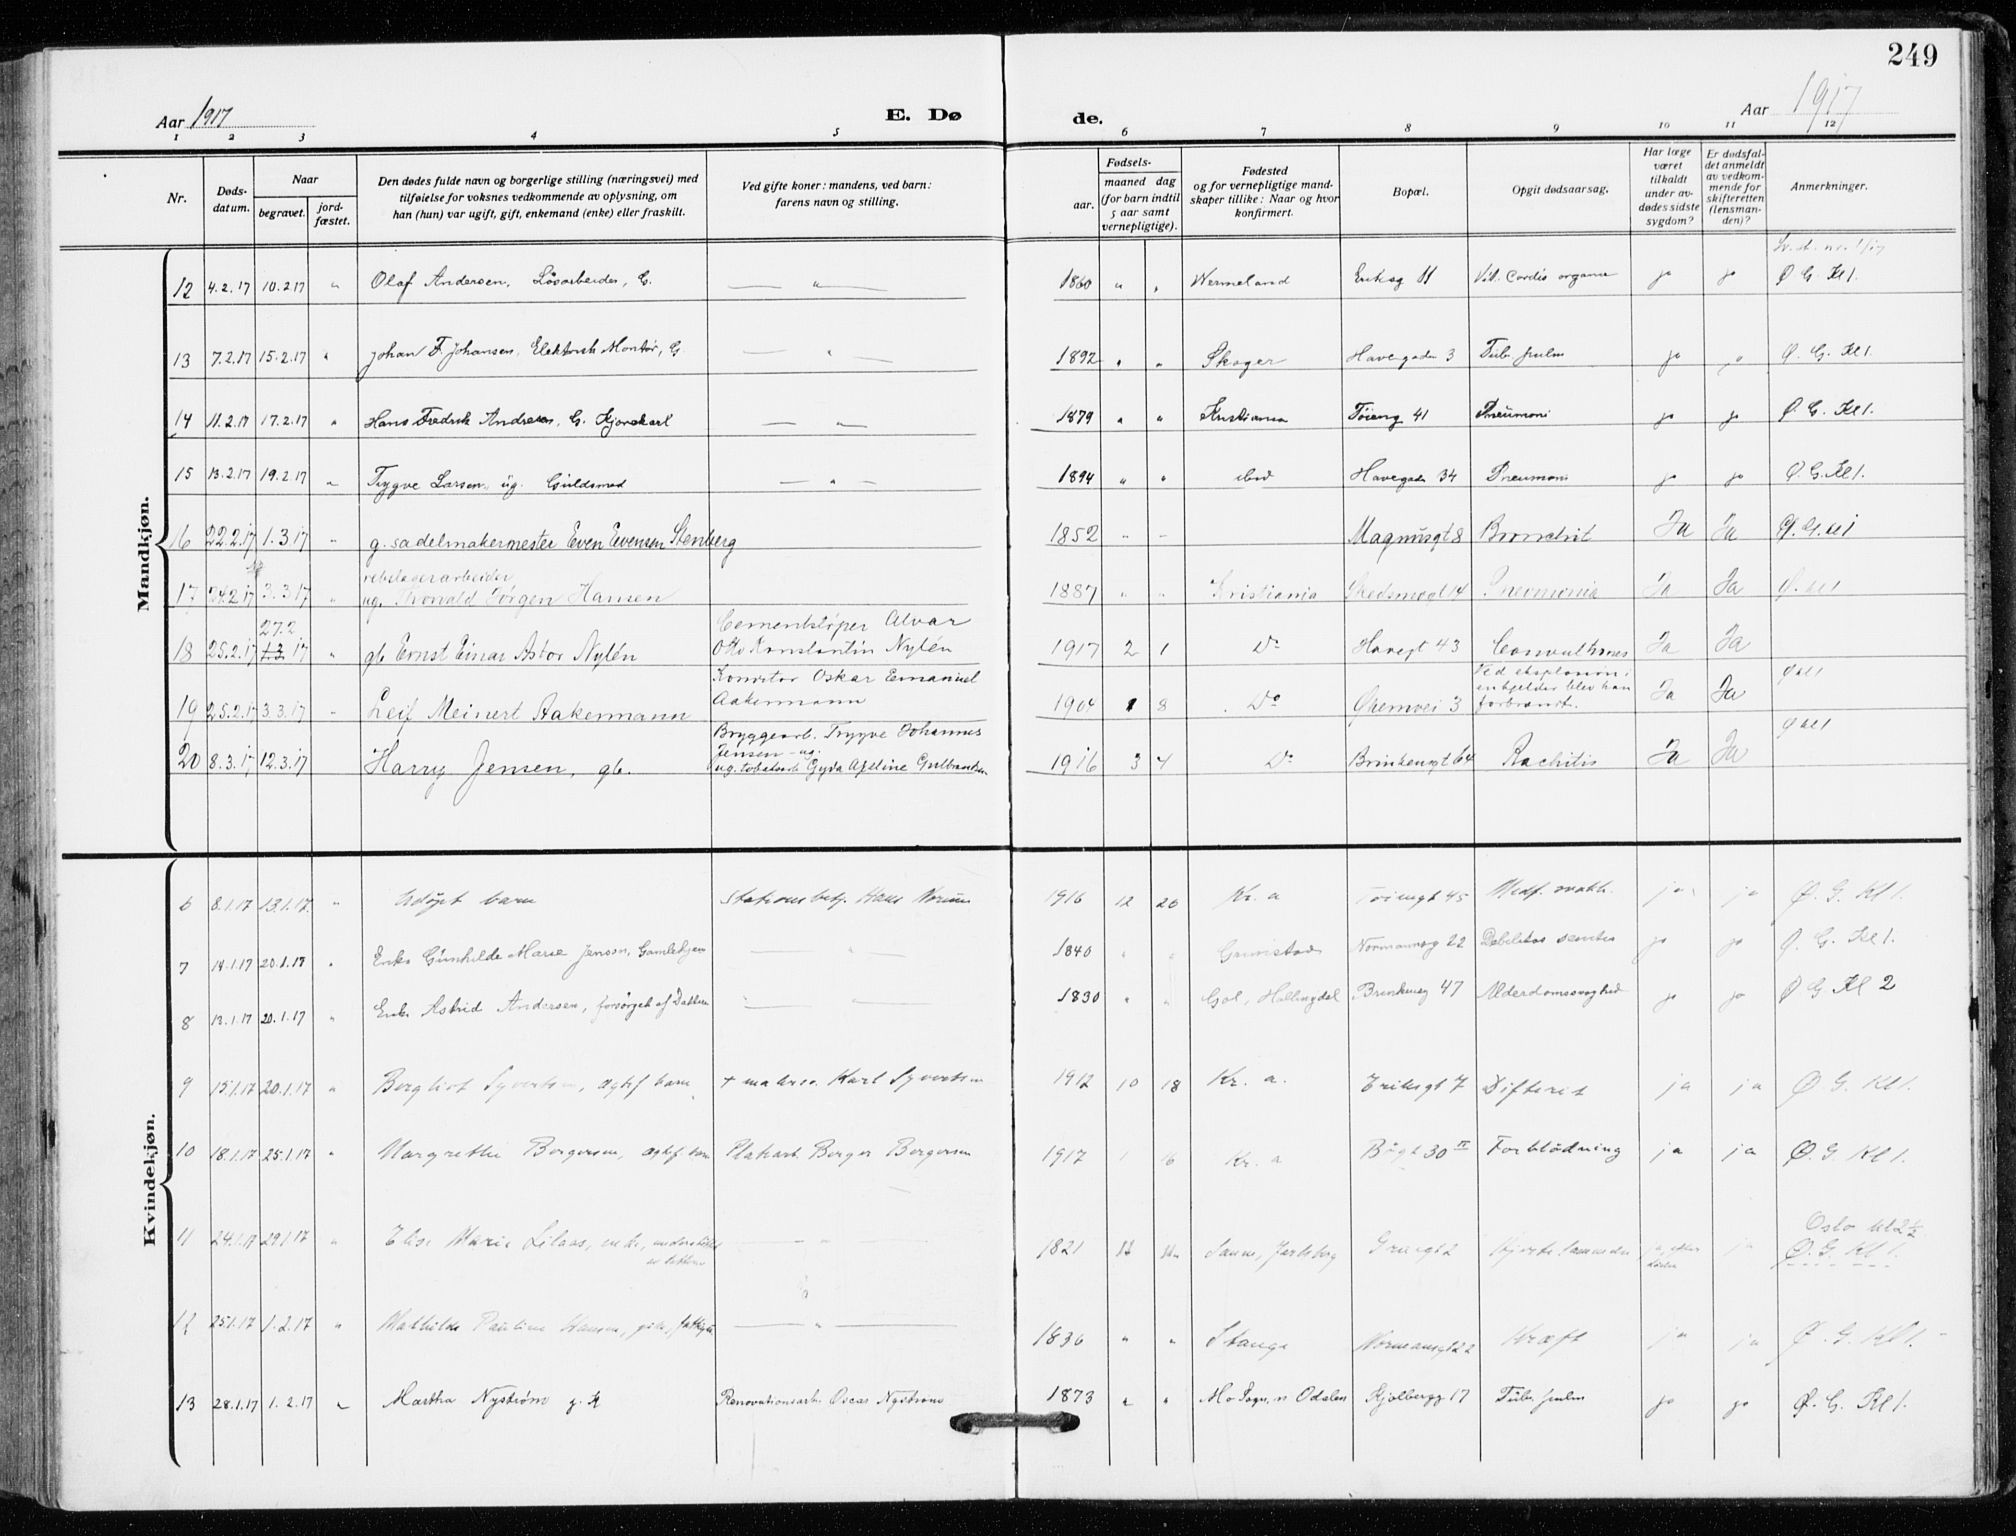 249
Aar 1917
E. Dø de.
Aar 1917
1 2 3 4 5 6 7 8 9 10 11 12
Nr.
Døds-datum.
Naar
begravet.
jord-fæstet.
Den dødes fulde navn og borgerlige stilling (næringsvei) med
tilføielse for voksnes vedkommende av oplysning, om
han (hun) var ugift, gift, enkemand (enke) eller fraskilt.
Ved gifte koner: mandens, ved barn:
farens navn og stilling.
Fødsels-
aar.
maaned dag
(for barn indtil
5 aar samt
vernepligtige).
Fødested
og for vernepligtige mand-
skaper tillike: Naar og hvor
konfirmert.
Bopæl.
Opgit dødsaarsag.
Har læge
været
tilkaldt
under av-
dødes sidste
sygdom?
Er dødsfal-
det anmeldt
av vedkom-
mende for
skifteretten
(lensman-
den)?
Anmerkninger.
Mandkjøn.
12 4.2.17 10.2.17 " Olaf Andersen, Løsarbeider, G. — " — 1860 " " Wermeland Eriksg 11 Vit. Cordis organ ja ja Ø G. Kl 1.
13 7.2.17 15.2.17 " Johan F. Johansen, Elektrisk Montør, G. — " — 1892 " " Skoger Havegaden 3 Tub. pulm ja ja Ø. G. Kl 1.
14 11.2.17 17.2.17 " Hans Fredrik Andresen, G. Kjørekarl — " — 1879 " " Kristiania Tøieng 41 Pneumoni ja ja Ø. G. Kl 1.
15 13.2.17 19.2.17 " Trygve Larsen, ug. Guldsmed — " — 1894 " " ibid Havegaden 34 Pneumoni ja ja Ø. G. Kl 1.
16 22.2.17 1.3.17 " g. sadelmakermester Even Evensen Stenberg 1852 " " Magnusgt 8 Bronchit Ja Ja Ø. G. kl 1
rebslagerarbeider
17 24.2.17 3.3.17 " ug. Thorvald Jörgen Hansen 1887 " " Kristiania Schedsmogt 14 Pneumonia Ja Ja Ø. kl 1
27.2
Cementstøper Alvar
18 25.2.17 1.3 17 " gb. Ernst Einar Astor Nylén Otto Konstantin Nylén 1917 2 1 Do Havegt 43 Convulsiones Ja Ja
Kontrolør Oskar Emanuel Ved eksplosion i Ø kl 1
19 25.2.17 3.3.17 " Leif Meinert Aakermann Aakermann 1904 1 8 Do 3 en kjelder blev han forbrændt. Ja Ja
Bryggearb. Trygve Johannes Ø kl 1
Jensen - ug.
20 8.3.17 12.3.17 Harry Jensen, gb. ug. tobaksarb Gyda Apeline Gulbrandsen 1916 3 4 Do Brinkensgt 64 Rachitis Ja Ja
Kvindekjøn.
6 8.1.17 13.1.17 " Udøpt barn Stationsbetj. Hans Norum 1916 12 20 Kr. a Tøiengt 45 Medf. svakh. ja ja Ø. G. Kl 1.
7 14.1.17 20.1.17 " Enke Gunhilde Marie Jensen, Gamlehjem — " — 1840 " " Grimstad Normannsg 22 Debilitas senilis ja ja Ø. G. Kl 1.
8 13.1.17 20.1.17 " Enke Astrid Andersen, forsørget af Datteren — " — 1830 " " Gol, Hallingdal Brinkensg 47 Alderdomssvaghed ja ja Ø G. Kl 2
9 15.1.17 20.1.17 " Bergliot Syvertsen, ægtef barn + matros Karl Syvertsen 1912 10 18 Kr. a. Eriksgt 7 Difterit ja ja Ø G. Kl 1.
10 18.1.17 25.1.17 " Margrethe Bergersen, ægtef barn Platearb Berger Bergersen 1917 1 16 Kr. a Bøgt 30 II Forblødning ja ja Ø. G. Kl 1.
Oslo kl 2 1/2
11 24.1.17 29.1.17 " Elise Marie Lilaas, enke, understøttet — " — 1821 Sande, Jarlsberg Grueagt 2 Hjertelammelse ja, efter døden ja Ø. G. Kl 1.
av datteren
12 25.1.17 1.2.17 " Mathilde Pauline Hansen, — " — 1836 " " Stange Normannsgt 22 Kræft ja ja Ø. G. Kl 1.
13 28.1.17 1.2.17 " Martha Nystrøm g. K Renovationsarb. Oscar Nystrøm 1873 " " Mo Sogn, n Odalen Kjølbergg 17 Tub. pulm ja ja Ø. G. Kl 1.